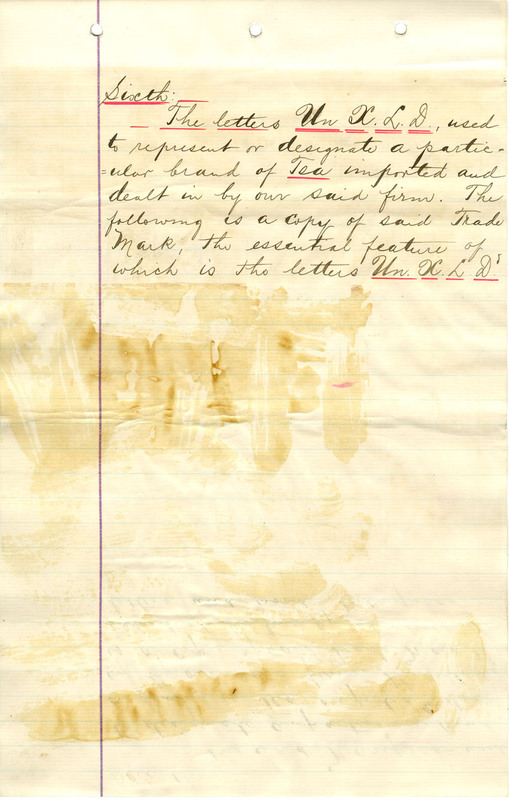 Sixth:
— The letters Un X. L. D., used
to represent or designate a partic-
=ular brand of Tea imported and
dealt in by our said firm. The
following is a copy of said Trade
Mark, the essential feature of
which is the letters Un. X. L. D.